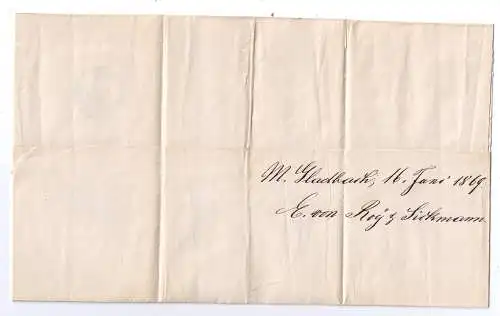 M. Gladbach, 16. Juni 1869.
E. von Roy & Sickmann